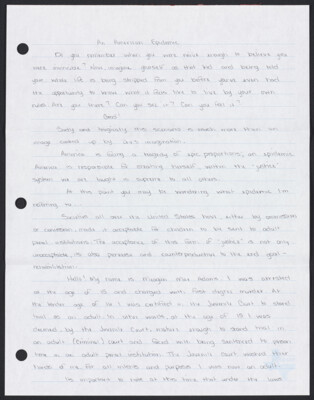 An American Epidemic
Do you remember when you were naive enough to believe you
were invincible? Now, imagine yourself as that kid and being told
your whole life is being stripped from you before you've even had
the opportunity to know what it feels like to live by your own
rules. Are you there? Can you see it? Can you feel it?
Good!
Sadly and tragically this scenario is much more than an
image conjured up by one's imagination.
America is facing a tragedy of epic proportions; an epidemic
America is responsible for creating themself within the "justice"
system we are taught is supreme to all others.
At this point you may be wondering what epidemic I'm
referring to...
Societies all over the United States have either by conventions
or convention made it acceptable for children to be sent to adult
penal institutions. The acceptance of this form of "justice" is not only
unacceptable, it's also perverse and counterproductive to the end goal-
rehabilitation.
Hello! My name is Efrén Paredes
at the age of 15 and charged with first degree murder. At
the tender age of I was certified in the Juvenile Court to stand
trial as an adult. In other words, at the age of I was
deemed, by the Juvenile Court, mature enough to stand trial in
an adult (criminal) court and faced being sentenced to prison
time in an adult penal institution. The Juvenile Court washed their
hands of me. For all intents and purposes I was now an adult.
It's important to note at this time that under the laws